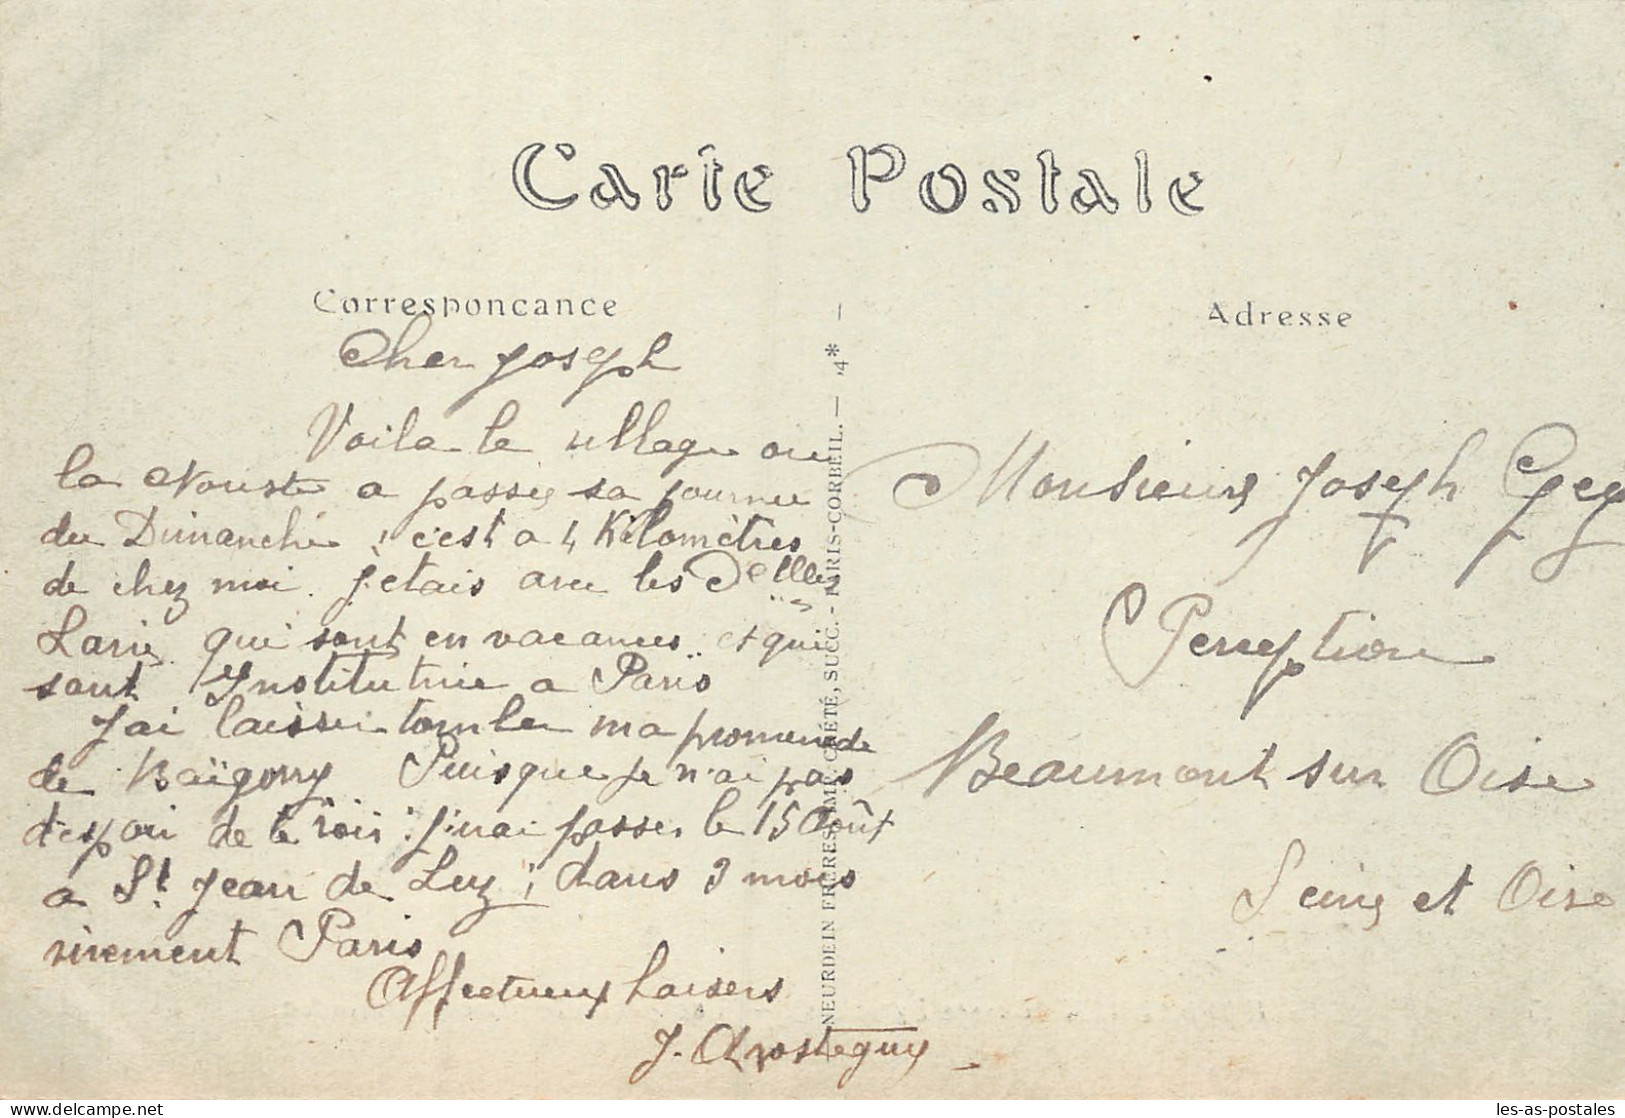 Carte Postale
Correspondance
Cher Joseph
Voila le village ou
la Nouste a passer sa journee
du Dimanche ; c'est a 4 Kilomètres
de chez moi. J'etais avec les Delles
Larie qui sont en vacances et qui
sont Institutrice a Paris
J'ai laisser tomber ma promenade
de Baïgorry Puisque je n'ai pas
d'espoir de te voir : j'irai passer le 15 Août
a St Jean de Luz ; dans 3 mois
vivement Paris
Affectueux baisers
J. Arosteguy
NEURDEIN FRÈRES IMP. CRÉTÉ, SUCC. - PARIS-CORBEIL. — 4* —
Adresse
Monsieur Joseph
Perception
Beaumont sur Oise
Seine et Oise
les-as-postales